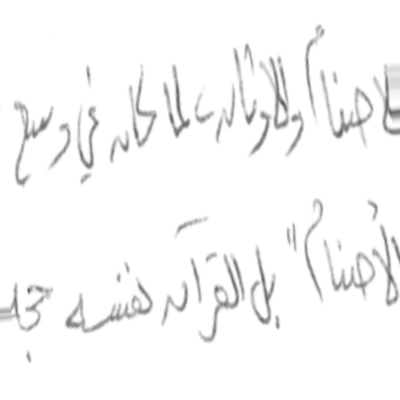 لاصنام والاوثان لما كان في وسع
الأصنام" بل القرآن نفسه